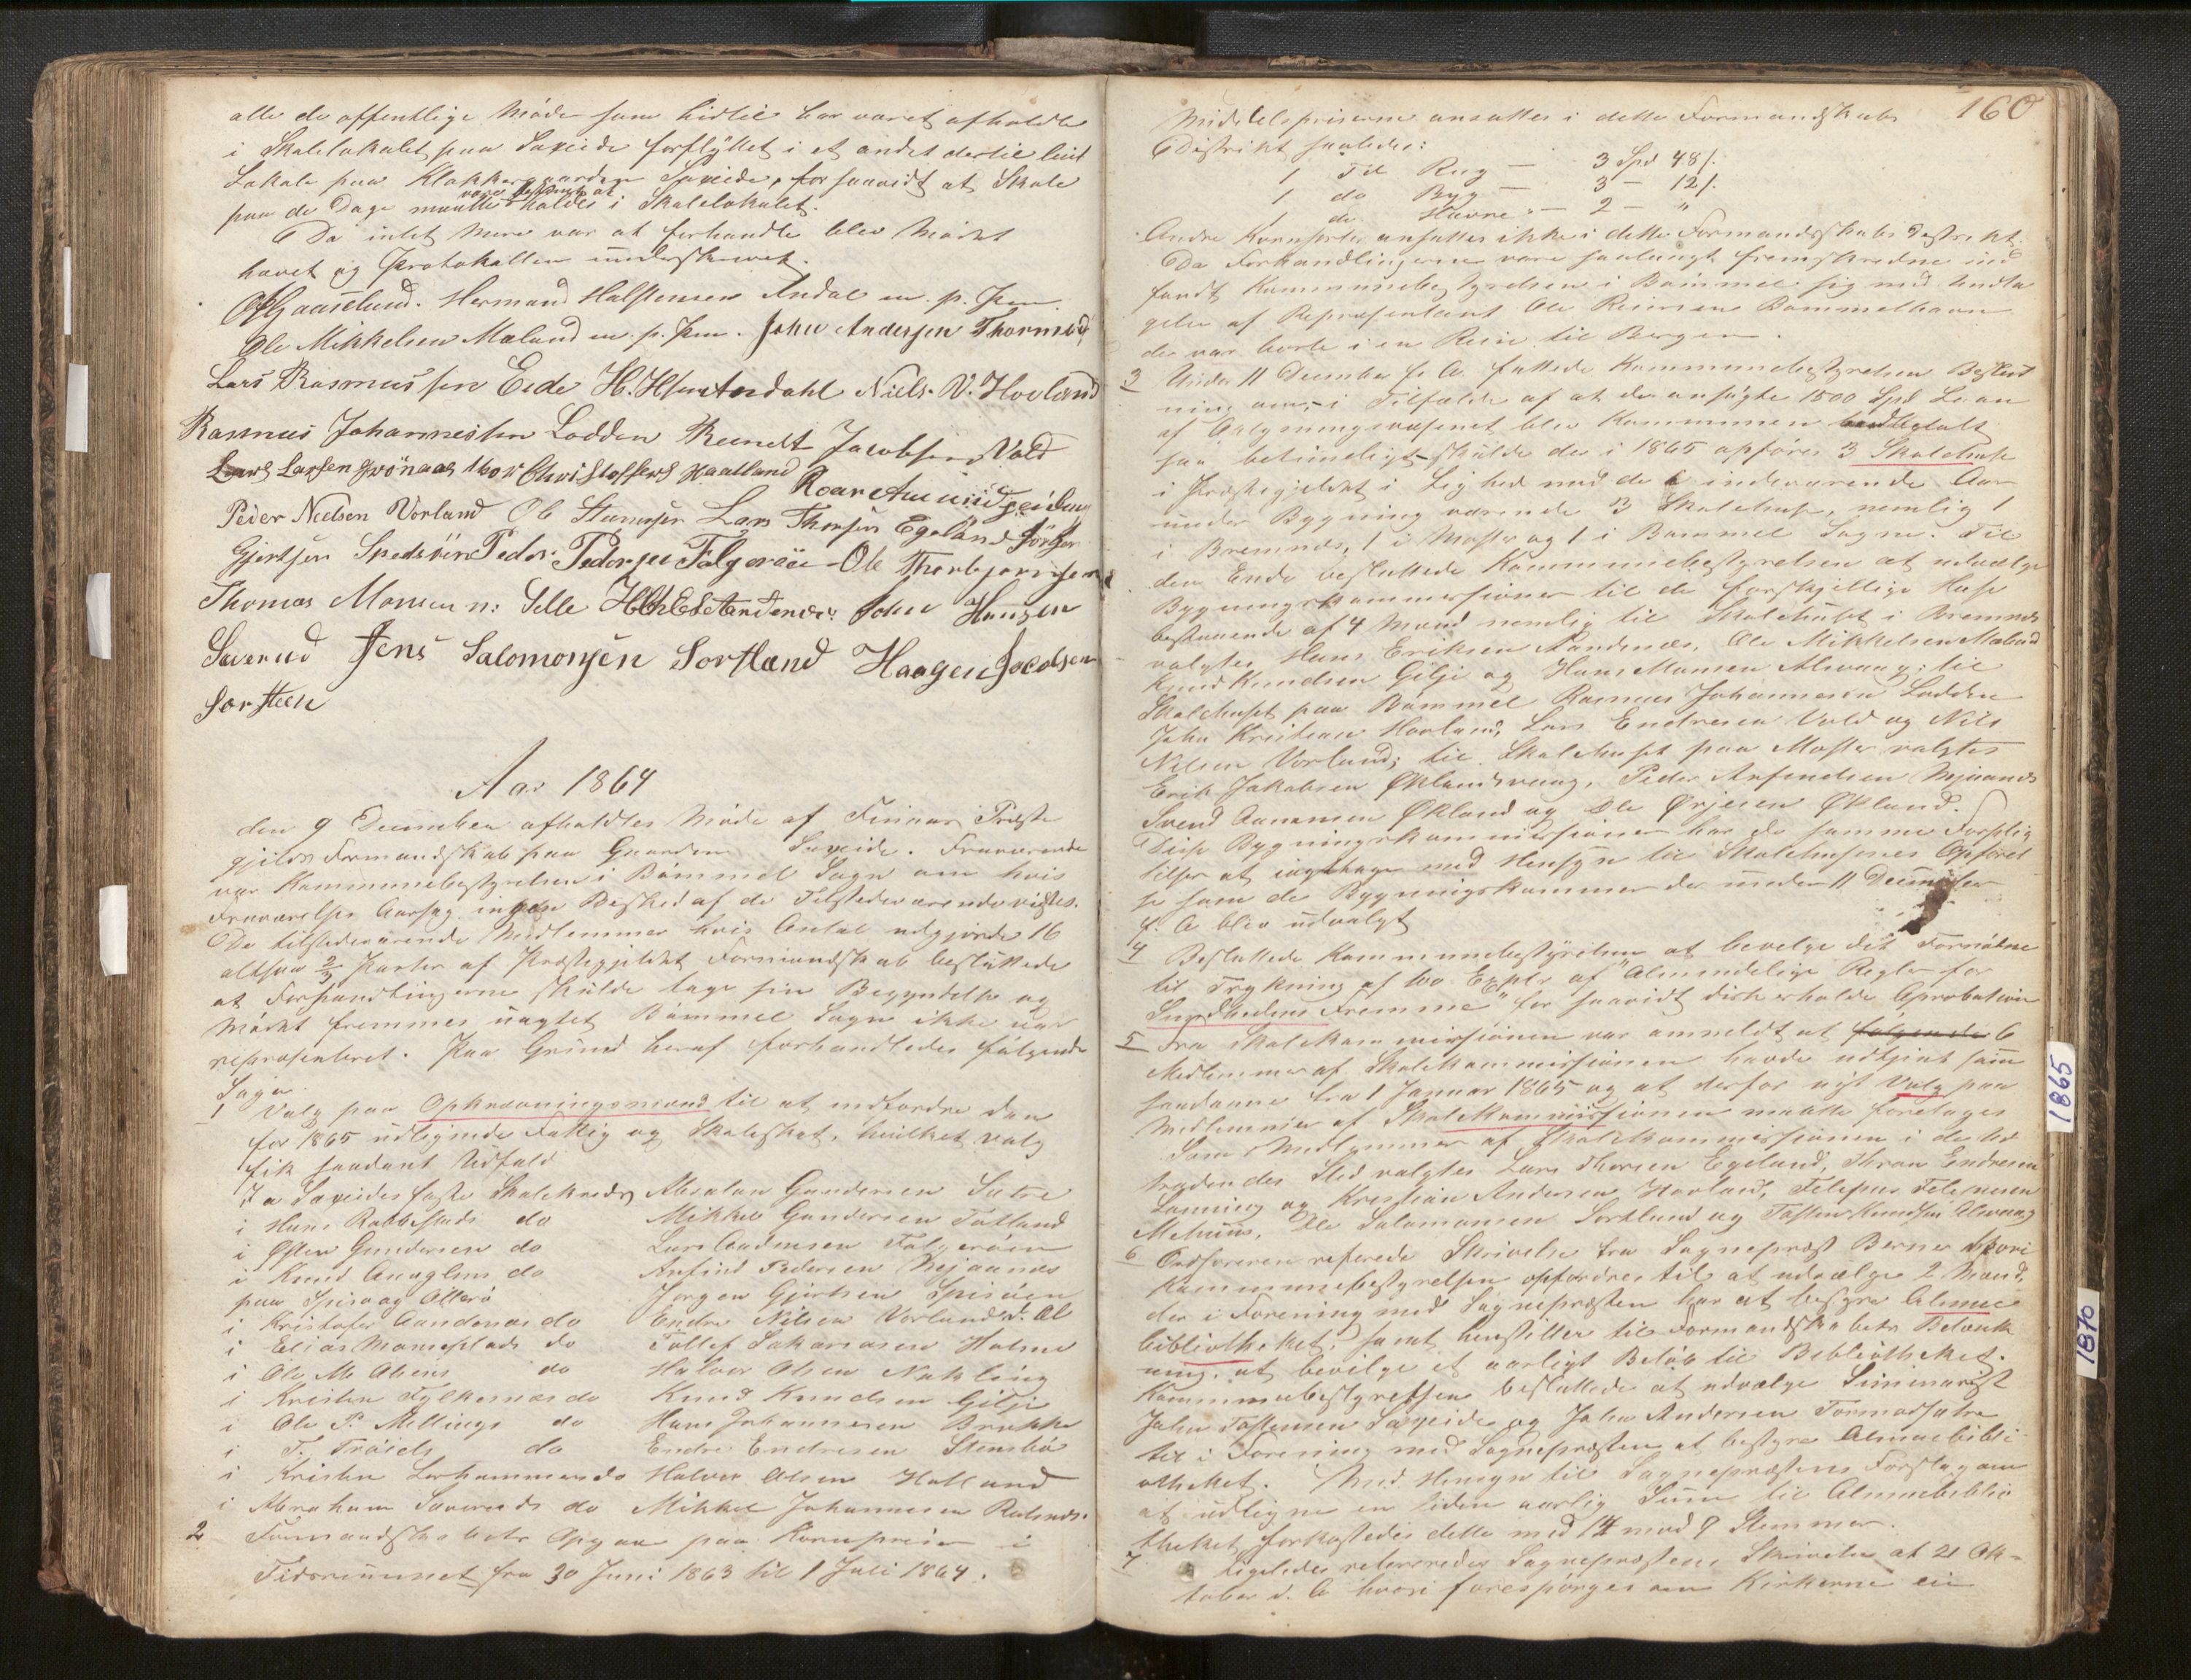 alle de offentlige Møder som hidtil har været afholdte
i Skolelokalet paa Saxeide forflyttet i et andet dertil leiet
Lokale paa Klokkergaarden Saxeide, for saavidt at Skole
paa de Dage maatte være bestemt at holdes i Skolelokalet.
Da intet mere var at forhandle blev Mødet
hævet og Protokollen underskrevet.
O. Gaaselund. Hermand Halstensen Andal m. p. Pen
Ole Mikkelsen Mæland m. p. Pen. John Andersen Thormod
Lars Rasmussen Eide H. Hansen Andahl Niels. V. Hovland
Rasmus Johannessen Lodden Reindt Jacobsen Vold
Lars Larsen Grønaas Thor Christoffers Haatland
Roar Amundsen
Peder Nielsen Vorland Ole Larsen Lars Thorsen Egeland Jørgen
Gjertsen Spidsøen Peder Pedersen Folgerøe Ole Thorbjørnsen
Thomas Monsen n: Selle H E Sandenæs: John Hansen
Søverud Jens Salomonsen Sortland Haagen Jacobsen
Sorsteen
Aar 1864
den 9 December afholdtes Møde af Finnaas Præste
gjelds Formandskab paa Gaarden Saxeide. Fraværende
var Kommunebestyrelsen i Bømmel Sogn om hvis
Fraværelses Aarsag ingen Besked af de Tilstedeværende vistes.
De tilstedeværende Medlemmer hvis Antal udgjorde 16
altsaa 2/3 Parter af Præstegjeldets Formandskab besluttede
at Forhandlingerne skulde tage sin Begyndelse og
Mødet fremmes uagtet Bømmel Sogn ikke var
repræsenteret. Paa Grund heraf forhandledes følgende
Sager.
1 Valg paa Opkrævningsmænd til at indfordre den
for 1865 udlignede Fattig og Skoleskat, hvilket Valg
fik saadant Udfald
I a Saxeides faste Skolekreds Absalon Gundersen Sætre
i Hans Rabbestads do Mikkel Gundersen Totland
i Østen Gundersen do Lars Andersen Folgerøen
i Knud Anuglens do Arfind Pedersen Mejaanes
paa Spisøog Otterø Jørgen Gjertsen Spisøen
i Kristofer Aandenæs do Endre Nilsen Vorland d. Æl
i Elias Monseplads do Tollef Sakariasen Holme
i Ole M. Alsens do Halvor Olsen Nækling
i Kristen Fylkesnæs do Knud Knudsen Gilje
i Ole P. Mellings do Hans Johannesen Brække
i T. Trøiels do Endre Endresen Stensbø
i Kristen Lerhammers do Halvor Olsen Hatland
i Abraham Søveruds do Mikkel Johannesen Rubnes.
2 Formandskabets Opgave paa Kornpriser i
Tidsrummet fra 30 Juni 1863 til 1 Juli 1864.
160
Middelspriserne ansattes i dette Formandskabs
Distrikt saaledes:
1 Td Rug — 3 Spd 48 /.
1 do Byg — 3 — 12 /.
1 do Havre — 2 — "
Andre Kornsorter ansattes ikke i dette Formandskabs Distrikt.
Da Forhandlingerne vare saalangt fremskredne ind
fandt Kommunebestyrelsen i Bømmel sig med Undta
gelse af Repræsentant Ole Reiersen Bømmelhavn
der var borte i en Reise til Bergen.
3 Under 11 December f. A. fattede Kommunebestyrelsen Beslut
ning om, i Tilfælde af at de ansøgte 1500 Spd Laan
af Oplysningsvæsenet blev Kommunen udbetalt
saa betimeligt skulde der i 1865 opføres 3 Skolehuse
i Præstegjeldet i Lighed med de i indeværende Aar
under Bygning værende 3 Skolehuse, nemlig 1
i Bremnæs, 1 i Moster og 1 i Bømmel Sogne. Til
den Ende besluttede Kommunebestyrelsen at udvælge
Bygningskommissioner til de forskjellige Huse
bestaaende af 4 Mænd nemlig til Skolehuset i Bremnæs
valgtes Hans Eriksen Aandenæs, Ole Mikkelsen Mæland
Knud Knudsen Gilje og Hans Monsen Alvaag; til
Skolehuset paa Bømmel Rasmus Johannesen Lodden
John Kristian Hovland, Lars Endresen Vold og Nils
Nilsen Vorland; til Skolehuset paa Moster valgtes
Erik Jakobsen Øklandsvaag, Peder Arfindsen Mjaanæs
Svend Aanensen Økland og Ole Ørjesen Økland.
Disse Bygningskommissioner har de samme Forplig
telser at iagttage med Hensyn til Skolehusenes Opførel
se som de Bygningskommer der under 11 December
f. A blev udvalgt
4 Besluttede Kommunebestyrelsen at bevilge det Fornødne
til Trykning af 100 Expler af "Almindelige Regler for
Sundhedens Fremme" for saavidt disse erholde Aprobation
5 Fra Skolekommissionen var anmeldt at følgende 6
Medlemmer af Skolekommissionen havde udtjent som
saadanne fra 1 Januar 1865 og at derfor nyt Valg paa
Medlemmer af Skolekommissionen maatte foretages
Som Medlemmer af Skolekommissionen i de Ud
trædendes Sted valgtes Lars Thorsen Egeland, Thron Endresen
Lønning og Kristian Andersen Hovland, Tollepus Tolepusen
Melum, Ole Salamonsen Sortland og Tosten Knudsen Alvaag
6 Ordføreren refererede Skrivelse fra Sognepræst Berner hvori
Kommunebestyrelsen opfordres til at udvælge 2 Mænd,
der i Forening med Sognepræsten har at bestyre Almue
bibliotheket, samt henstiller til Formandskabets Betænk
ning, at bevilge et aarligt Beløb til Bibliotheket.
Kommunebestyrelsen besluttede at udvælge Seminarist
John Tostensen Saxeide og John Andersen Tormodsætre
til i Forening med Sognepræsten at bestyre Almuebibli
otheket. Med Hensyn til Sognepræstens Forslag om
at udligne en liden aarlig Sum til Almuebiblio
theket forkastedes dette med 14 mod 9 Stemmer.
7 Ligeledes refereredes Sognepræstens Skrivelse af 21 Ok-
tober d. A hvori forespørges om Kirkerne ei
1865
1870